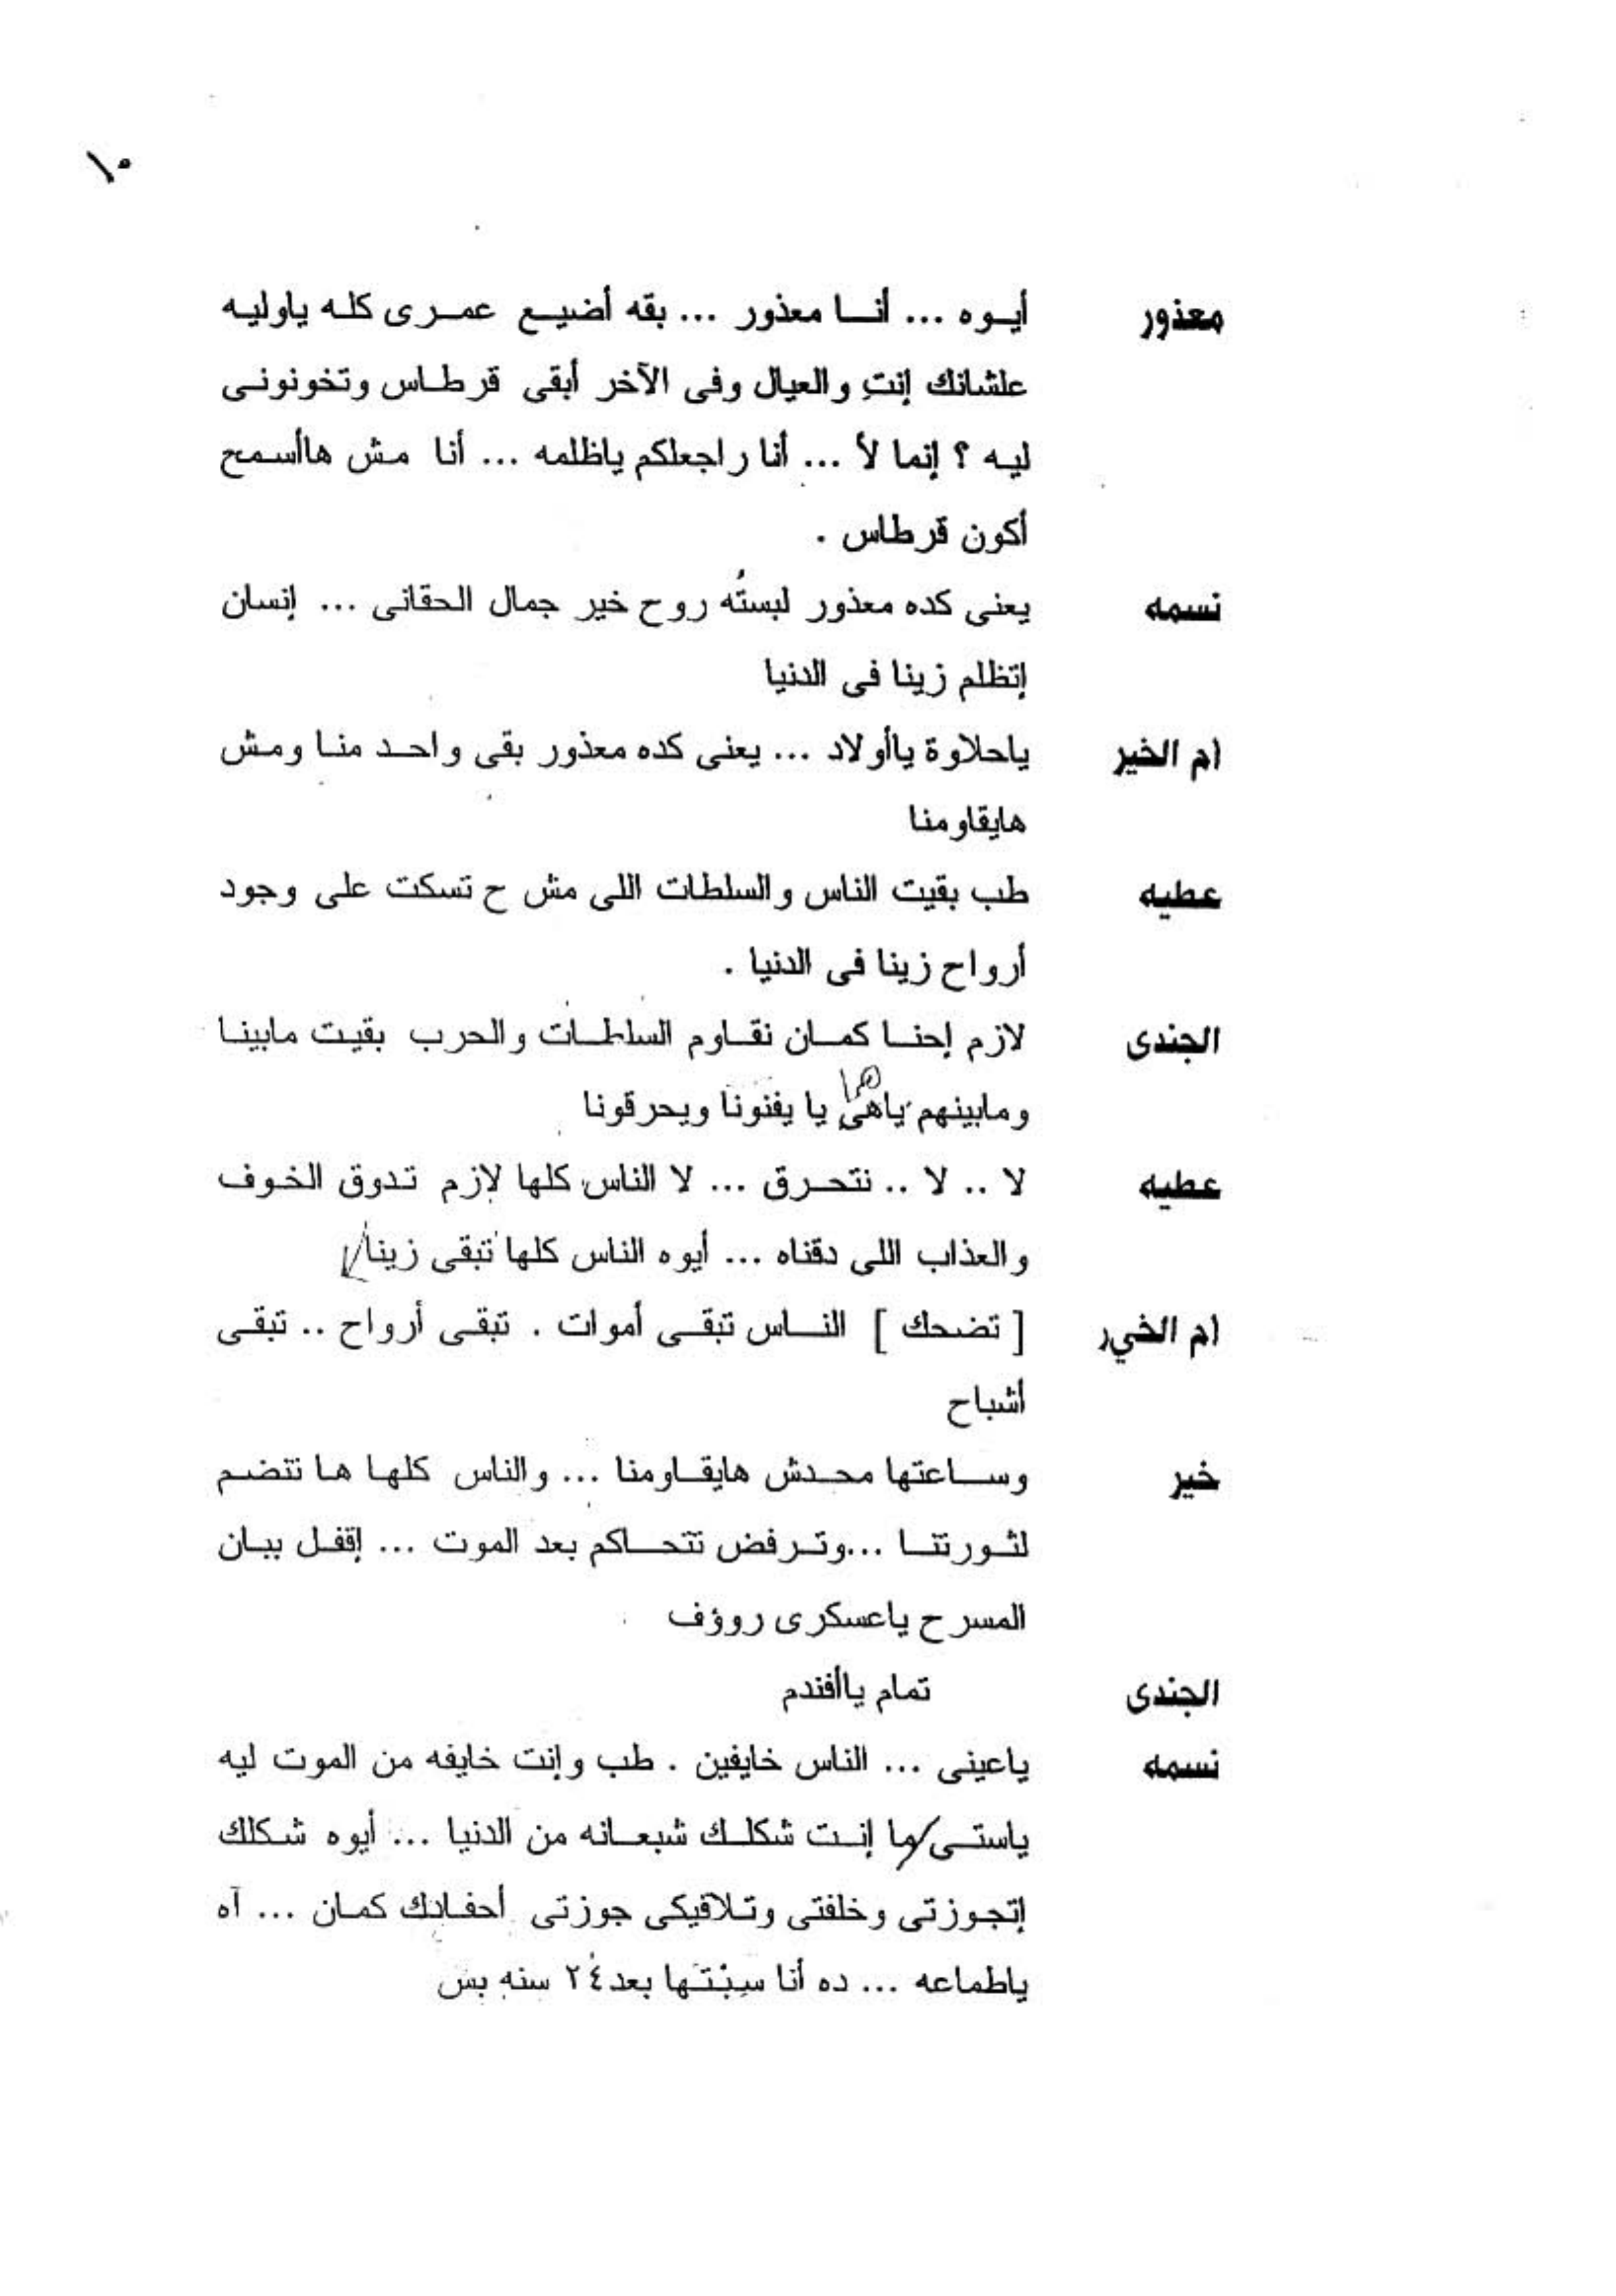 ١٠
معذور أيوه ... أنا معذور ... بقه أضيع عمرى كله ياوليه
علشانك إنتِ والعيال وفى الآخر أبقى قرطاس وتخونونى
ليه ؟ إنما لأ ... أنا راجعلكم ياظلمه ... أنا مش هاأسمح
أكون قرطاس .
نسمه يعنى كده معذور لبستُه روح خير جمال الحقانى ... إنسان
إتظلم زينا فى الدنيا
ام الخير ياحلاوة ياأولاد ... يعنى كده معذور بقى واحد منا ومش
هايقاومنا
عطيه طب بقيت الناس والسلطات اللى مش ح تسكت على وجود
أرواح زينا فى الدنيا .
الجندى لازم إحنا كمان نقاوم السلطات والحرب بقيت مابينا
هما
ومابينهم ياهى يا يفنونا ويحرقونا
عطيه لا .. لا .. نتحرق ... لا الناس كلها لازم تدوق الخوف
والعذاب اللى دقناه ... أيوه الناس كلها تبقى زينا
ام الخير [ تضحك ] الناس تبقى أموات . تبقى أرواح .. تبقى
أشباح
خير وساعتها محدش هايقاومنا ... والناس كلها ها تتضم
لثورتنا ...وترفض تتحاكم بعد الموت ... إقفل ببان
المسرح ياعسكرى رووف
الجندى تمام ياأفندم
نسمه ياعينى ... الناس خايفين . طب وإنت خايفه من الموت ليه
ياستى ما إنت شكلك شبعانه من الدنيا ... أيوه شكلك
إتجوزتى وخلفتى وتلاقيكى جوزتى أحفادك كمان ... آه
ياطماعه ... ده أنا سِبْتَها بعد ٢٤ سنه بس